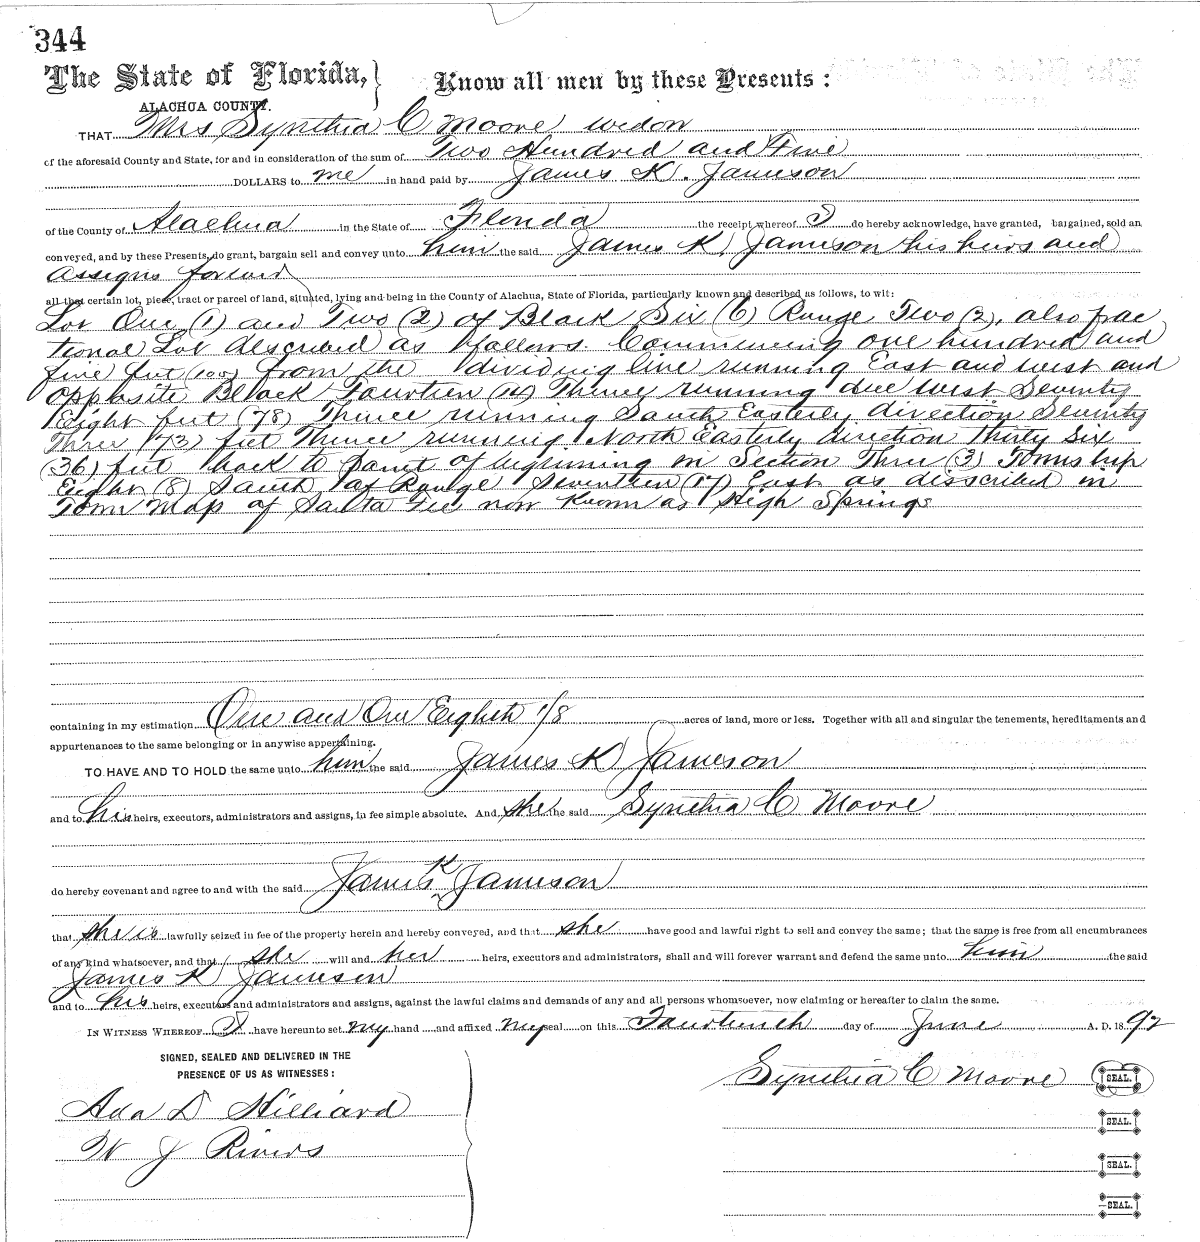 344
The State of Florida, } Know all men by these Presents :
ALACHUA COUNTY.
THAT Mrs Synthia C Moore widow
of the aforesaid County and State, for and in consideration of the sum of Two Hundred and Five
DOLLARS to me in hand paid by James K. Jameson
of the County of Alachua in the State of Florida the receipt whereof I do hereby acknowledge, have granted, bargained, sold an
conveyed, and by these Presents, do grant, bargain sell and convey unto him the said James K Jameson his heirs and
assigns forever
all that certain lot, piece, tract or parcel of land, situated, lying and being in the County of Alachua, State of Florida, particularly known and described as follows, to wit:
Lot One (1) and Two (2) of Block Six (6) Range Two (2), also frac
tional Lot described as follows. Commencing one hundred and
five feet from the dividing line running East and west and
opposite Block Fourteen (14) Thence running due west Seventy
Eight feet (78) Thence running South Easterly direction Seventy
Three (73) feet Thence running North Easterly direction Thirty Six
(36) feet back to point of beginning in Section Three (3) Township
Eight (8) South of Range Seventeen (17) East as discribed in
Town Map of Santa Fee now Known as High Springs
containing in my estimation One and One Eighth 1/8 acres of land, more or less. Together with all and singular the tenements, hereditaments and
appurtenances to the same belonging or in anywise appertaining.
TO HAVE AND TO HOLD the same unto him the said James K Jameson
and to his heirs, executors, administrators and assigns, in fee simple absolute. And she the said Synthia C Moore
do hereby covenant and agree to and with the said James K Jameson
that she is lawfully seized in fee of the property herein and hereby conveyed, and that she have good and lawful right to sell and convey the same; that the same is free from all encumbrances
of any kind whatsoever, and that she will and her heirs, executors and administrators, shall and will forever warrant and defend the same unto him the said
James K Jameson
and to his heirs, executors and administrators and assigns, against the lawful claims and demands of any and all persons whomsoever, now claiming or hereafter to claim the same.
IN WITNESS WHEREOF I have hereunto set my hand and affixed my seal on this Fourteenth day of June A. D. 1892
SIGNED, SEALED AND DELIVERED IN THE
PRESENCE OF US AS WITNESSES:
Synthia C Moore SEAL.
Ada D Hilliard
SEAL.
W J Rivers
SEAL.
SEAL.